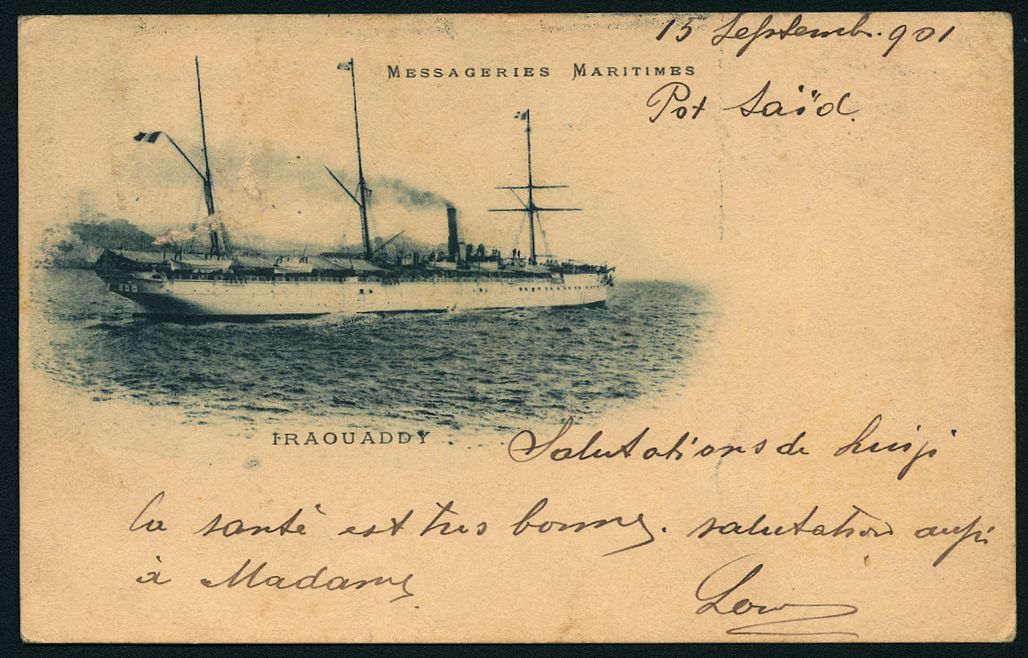 15 Septembr. 901
MESSAGERIES MARITIMES
Pot Saïd.
IRAOUADDY
Salutations de Luigi
la santé est tres bonne. salutation aussi
à Madame